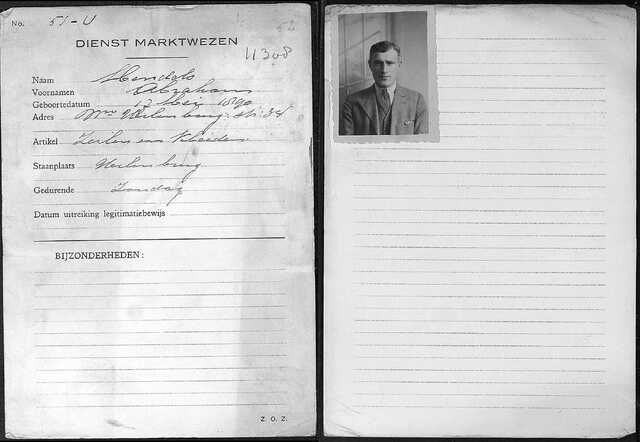 No. 51-U 52
DIENST MARKTWEZEN
11308
Naam Mendels
Voornamen Abraham
Geboortedatum 17 Mei 1890
Adres Uilenburg. str. 34
Artikel en Kleeden
Staanplaats Uilenburg
Gedurende Zondag
Datum uitreiking legitimatiebewijs
BIJZONDERHEDEN:
Z. O. Z.